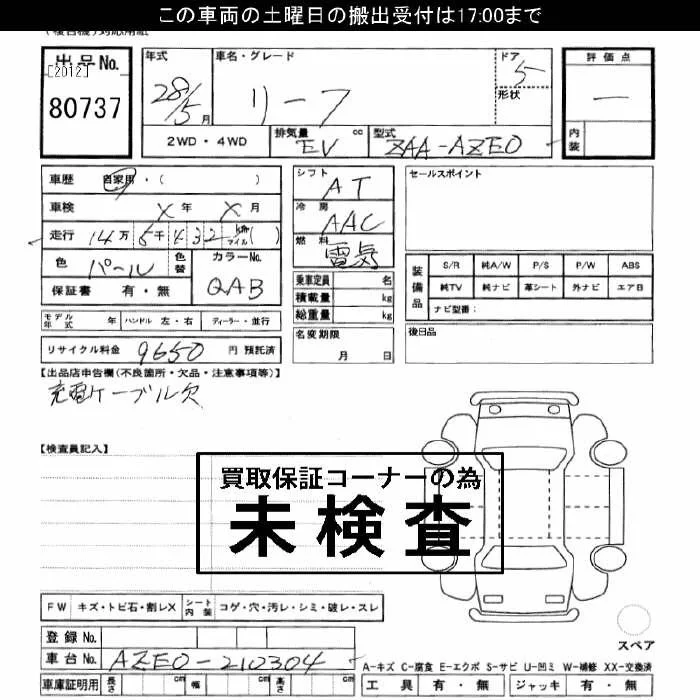 この車両の土曜日の搬出受付は17:00まで
出品No.
[2012]
80737
年式 28/5月
車名・グレード リーフ
ドア 5
形状
評価点 ー
内装
2WD・4WD
排気量 EV cc
型式 ZAA-AZE0
車歴 自家用・( )
車検 X年 X月
走行 14万 5千 432 km マイル ( )
色 パール
色替
カラーNo. QAB
保証書 有・無
シフト AT
冷房 AAC
燃料 電気
乗車定員 名
積載量 kg
総重量 kg
名変期限 月 日
セールスポイント
装備品
S/R 純A/W P/S P/W ABS
純TV 純ナビ 革シート 外ナビ エアB
ナビ型番:
後日品
モデル年式 年 ハンドル 左・右 ディーラー・並行
リサイクル料金 9650 円 預託済
【出品店申告欄(不良箇所・欠品・注意事項等)】
充電ケーブル欠
【検査員記入】
買取保証コーナーの為
未検査
FW キズ・トビ石・割レX シート内装 コゲ・穴・汚レ・シミ・破レ・スレ
スペア
登録No.
車台No. AZE0-210304
A-キズ C-腐食 E-エクボ S-サビ U-凹ミ W-補修 XX-交換済
車庫証明用 長さ cm 幅 cm 高さ cm
工具 有・無 ジャッキ 有・無